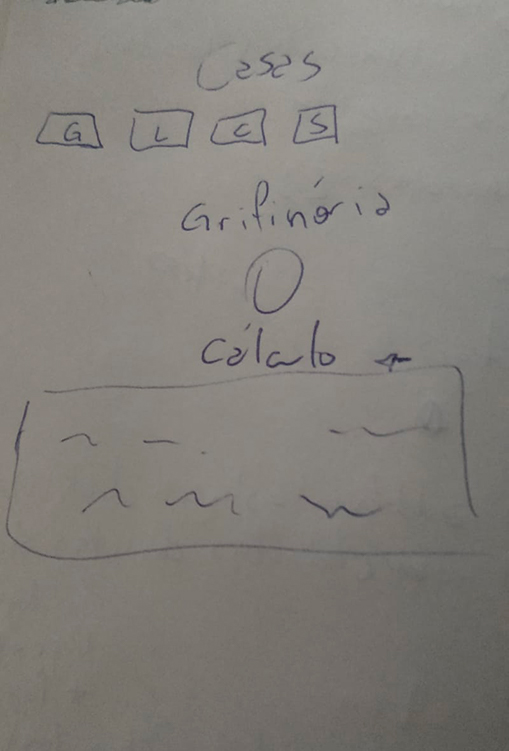 Casas
G L C S
Grifinória
O
Cálculo